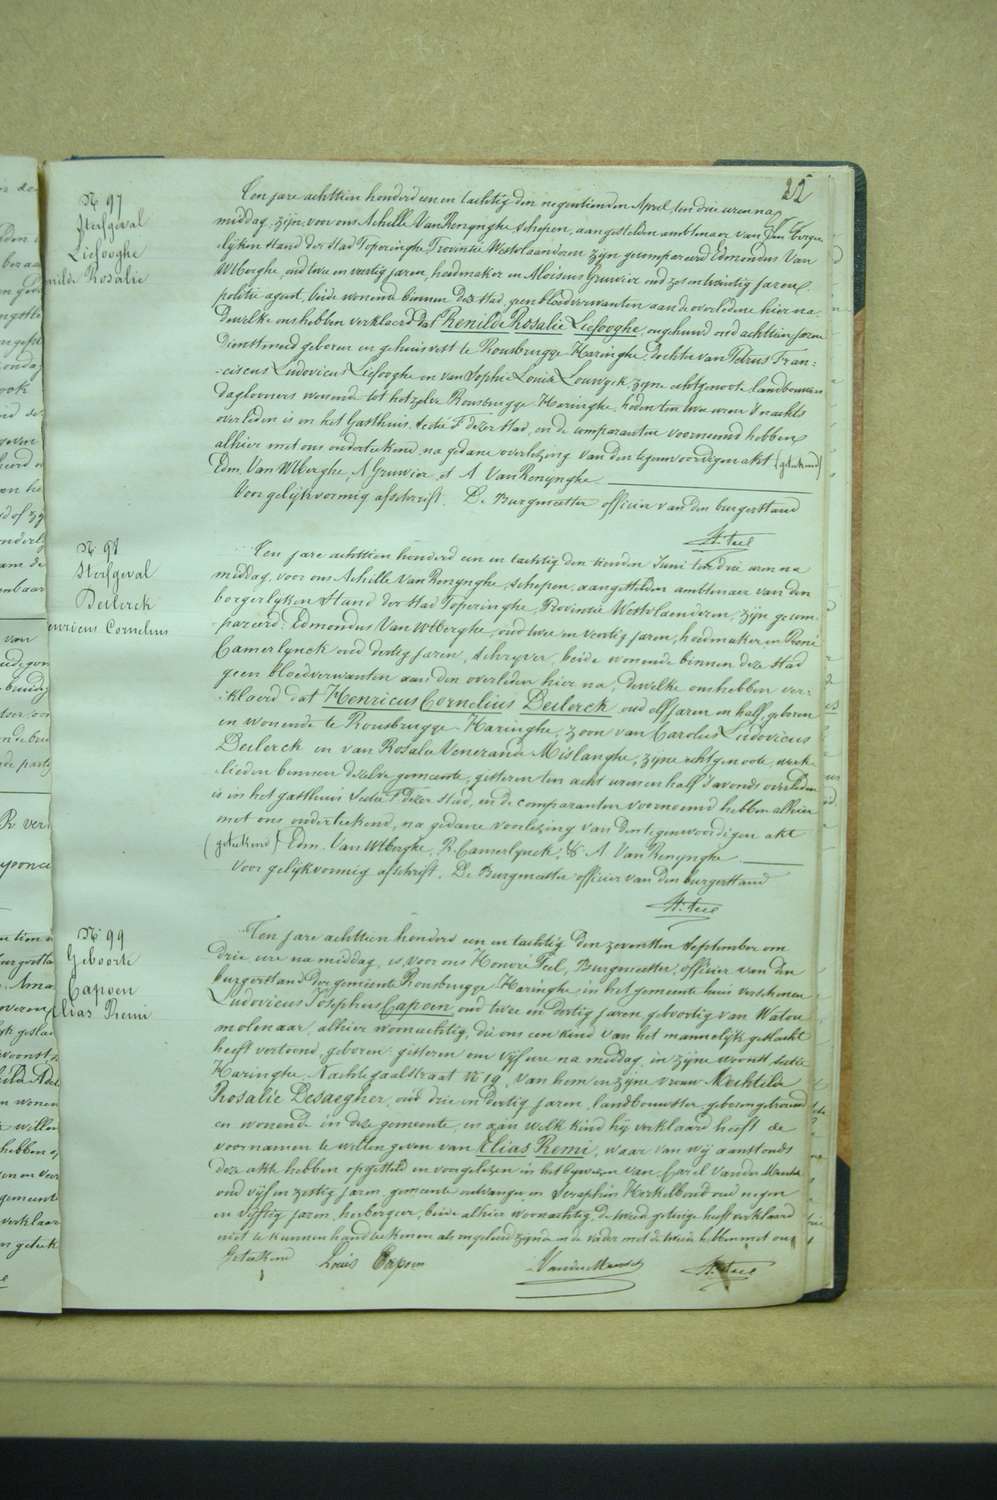 25
N 97
Sterfgeval
Liefooghe
nilde Rosalie
Ten jare achttien honderd een en tachtig den negentienden April, ten drie uren na
middag, zijn voor ons Achille Van Renynghe schepen, aangestelden ambtenaer van den burger
lijken stand der stad Poperinghe Provintie Westvlaanderen zijn gecompareerd Edmondus Van
Wlberghe, oud twee en veertig jaren, hoedmaker en Aloisius Gruwier oud zes en twintig jaren
politie agent, beide wonende binnen deze stad, geen bloedverwanten aan de overledene hier na
dewelke ons hebben verklaerd dat Renilde Rosalie Liefooghe, ongehuwd oud achttien jaren
dienstmeid geboren en gehuisvest te Rousbrugge Haringhe, dochter van Petrus Fran-
-ciscus Ludovicus Liefooghe en van Sophie Louise Louwyck, zijne echtgenoote landbouwers
dagloners wonende tot hetzelve Rousbrugge Haringhe, heden ten twee uren 's nachts
overleden is in het Gasthuis, sectie F dezer stad, en de comparanten voornoemd hebben
alhier met ons onderteekend, na gedane voorlezing van den tegenwoordigen akt (geteekend)
Edm. Van Wlberghe, A Gruwier, et A Van Renynghe
Voor gelijkvormig afschrift. De Burgmeester officier van den burgerstand
H. Teel
N 98
Sterfgeval
Deilerck
enricus Cornelius
Ten jare achttien honderd een en tachtig den tienden Juni ten drie uren na
middag, voor ons Achille Van Renynghe, schepen, aangestelden ambtenaer van den
borgerlyken Stand der Stad Poperinghe, Provintie Westvlaenderen, zijn gecom-
pareerd: Edmondus Van Wlberghe, oud twee en veertig jaren, hoedmaker en René
Camerlynck oud dertig jaren, schryver, beide wonende binnen deze stad
geen bloedverwanten aan den overleden hier na, dewelke ons hebben ver-
-klaerd dat Henricus Cornelius Deilerck oud elf jaren en half, geboren
en wonende te Rousbrugge Haringhe, zoon van Carolus Ludovicus
Deilerck en van Rosalie Veneranda Mislanghe, zijne echtgenoote, werk-
lieden binnen dezelve gemeente, gisteren ten acht uren en half 's avonds overleden
is in het gasthuis sectie F dezer stad, en de comparanten voornoemd hebben alhier
met ons onderteekend, na gedane voorlezing van den tegenwoordigen akt
(geteekend) Edm. Van Wlberghe, R. Camerlynck, & A Van Renynghe
Voor gelijkvormig afschrift. De Burgmeester officier van den burgerstand
H. Teel
N 99
Geboorte
Capoen
Elias Remi
Ten jare achttien honderd een en tachtig den zevensten September om
drie ure na middag, is voor ons Honoré Teel, Burgmeester, officier van den
burgerstand der gemeente Rousbrugge Haringhe, in het gemeente huis verschenen
Ludovicus Josephus Capoen, oud twee en dertig jaren, geboortig van Watou
molenaar, alhier woonachtig, die ons een kind van het mannelijk geslacht
heeft vertoond, geboren gisteren om vijf ure na middag in zijne woonst sectie
Haringhe, Nachtegaalstraat N 19, van hem en zijne vrouw Mechtilde
Rosalie Desaegher, oud drie en dertig jaren, landbouwster, geboren getrouwd
en wonende in deze gemeente, en aan welk kind hij verklaard heeft de
voornamen te willen geven van Elias Remi, waar van wij aanstonds
deze akt hebben opgesteld en voorgelezen in het bijwezen van Carel Vander Meersch
oud vijf en zestig jaren, gemeente ontvanger en Seraphin Kerkelbond oud negen
en vijftig jaren, herbergier, beide alhier woonachtig, de tweede getuige heeft verklaard
niet te kunnen handteekenen als ongeleerd zijnde en de vader met de eerste hebben met ons
Geteekend Louis Capoen VanderMeersch H. Teel